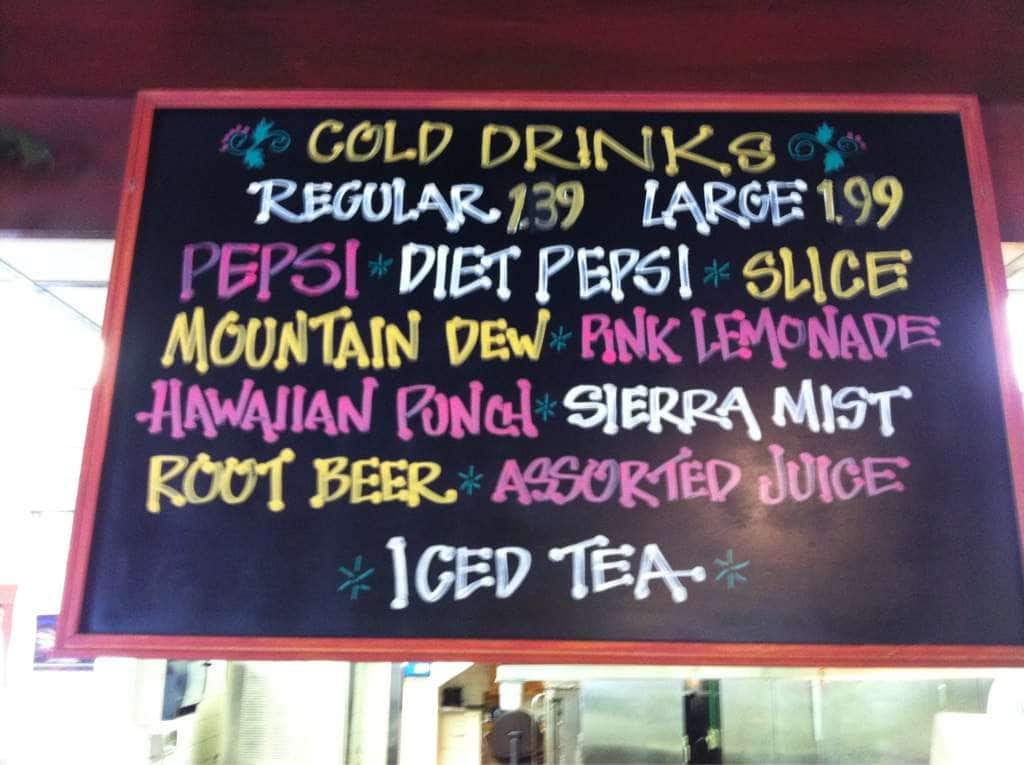 COLD DRINKS
REGULAR 1.39 LARGE 1.99
PEPSI * DIET PEPSI * SLICE
MOUNTAIN DEW * PINK LEMONADE
HAWAIIAN PUNCH * SIERRA MIST
ROOT BEER * ASSORTED JUICE
* ICED TEA *